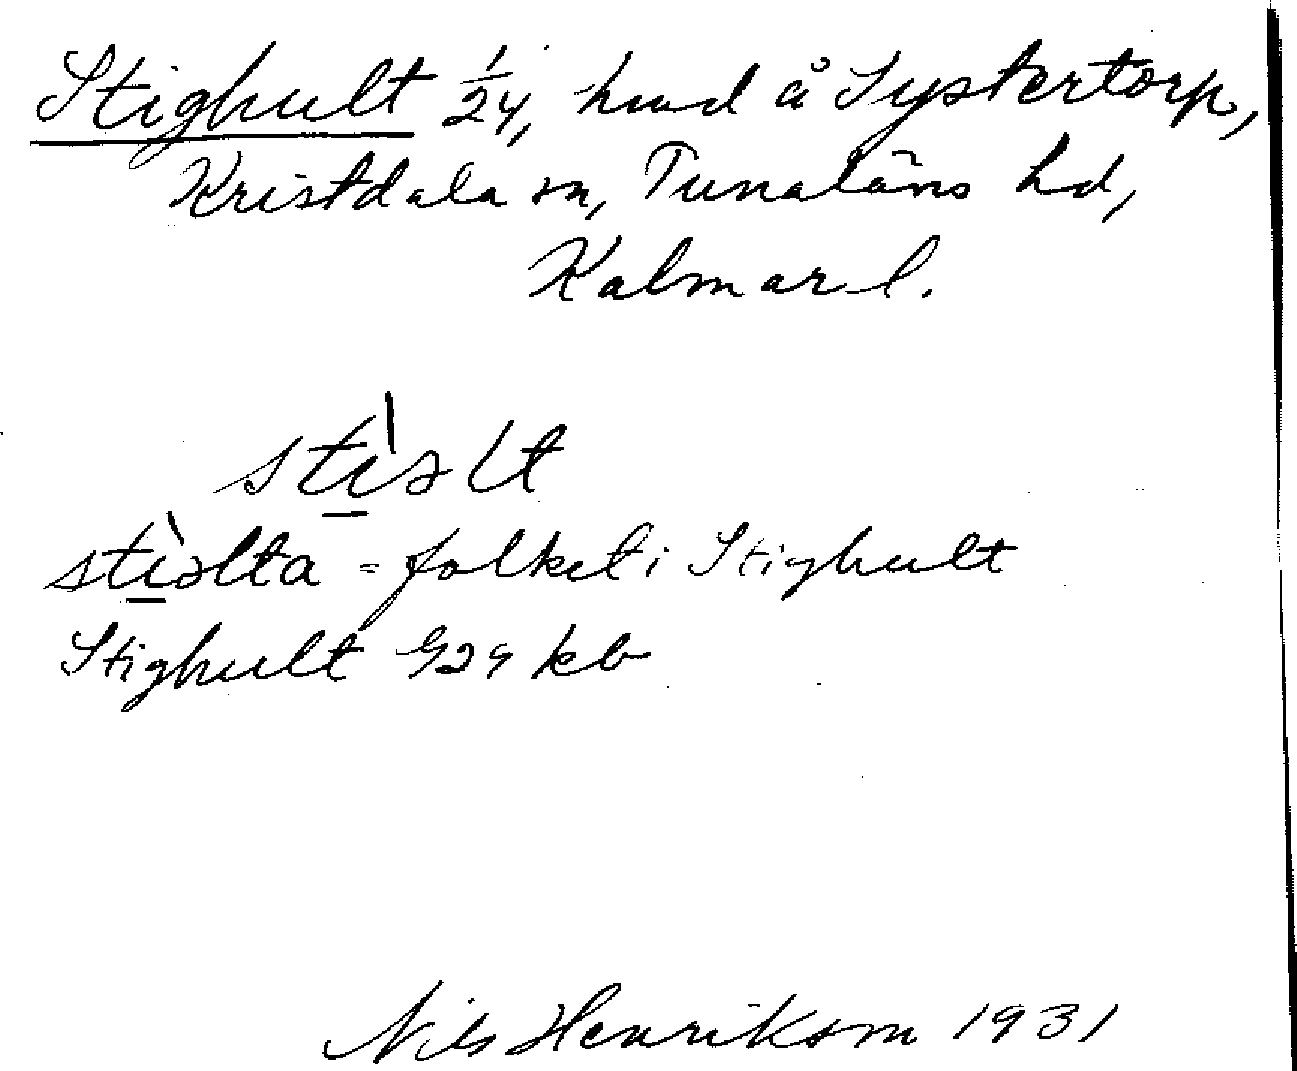 Stighult 1/24, hmd å Systertorp,
Kristdala sn, Tunaläns hd,
Kalmar l.
stì̠əlt
stì̠əlta = folket i Stighult
Stighult 929 kb
Nils Henriksson 1931